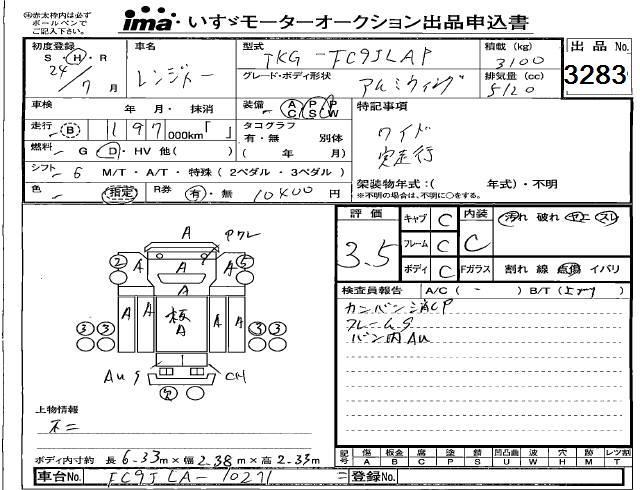 ※赤太枠内は必ず
ボールペンで
ご記入下さい。
ima いすゞモーターオークション出品申込書
初度登録
S・H・R
24/7月
車名
レンジャー
型式
TKG-FC9JLAP
積載 (kg)
3100
出品No.
3283
グレード・ボディ形状
アルミウイング
排気量 (cc)
5120
車検 年 月・ 抹消
装備 AC PS PW
特記事項
走行 B 197 000km「 」
タコグラフ
有・無 別体
( 年 月)
ワイド
実走行
燃料 G D・HV 他( )
シフト 6 M/T・A/T・特殊(2ペダル・3ペダル)
架装物年式:( 年式)・不明
※不明の場合は、不明に○をする。
色 指定 R券 有・無 10400円
評価
3.5
キャブ C
フレーム C
ボディ C
内装
C
Fガラス
汚れ 破れ コゲ スレ
割れ 線 点傷 イバリ
A Pクレ
2 A A A 5
A
A A 板A A A
3 3 3 3
Au S CH
検査員報告 A/C( - ) B/T( )
カンバン消CP
フレームS
バン内Au
上物情報
ボディ内寸約 長6.33m×幅2.38m×高2.33m
記号 傷A 板金B 腐C 塗P 錆S 凹凸曲U 波W 穴H 跡X レツ割T
車台No. FC9JLA-10271
登録No.